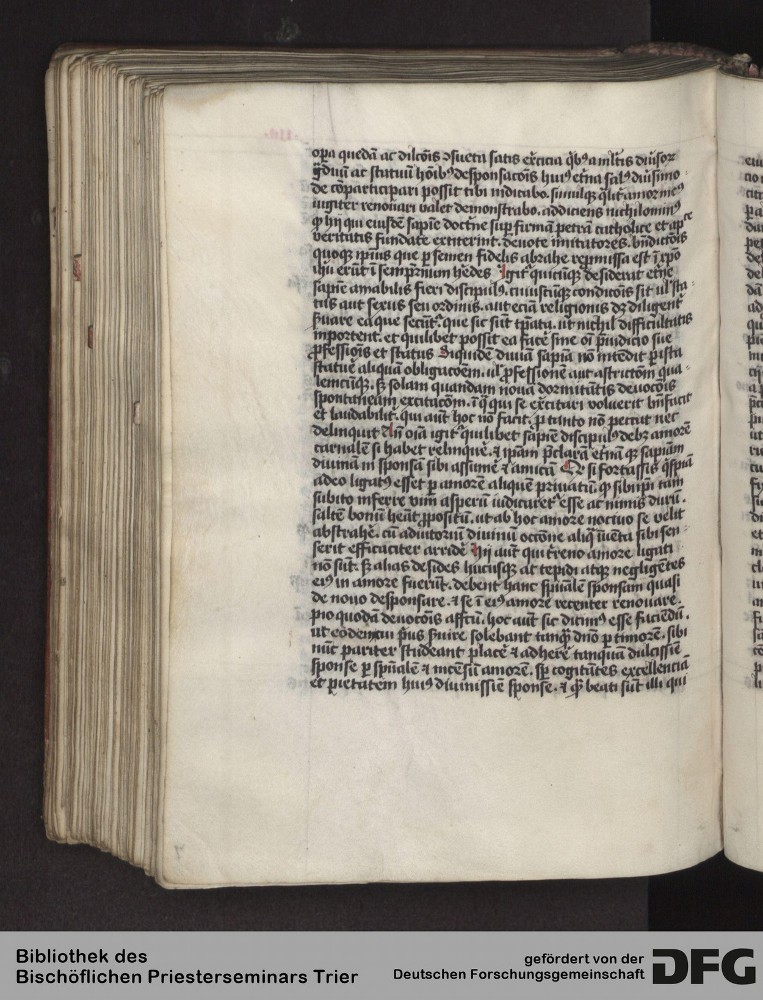 opa quedā ac dilcōis ɔsueta satis exͨicia qͥbꝰ a ml̄tis diuīsor
de cōparticipari possit tibi indicabo. simulqꝫ qͣlit̄ amor meꝰ
iugiter renouari valet demonstrabo. addiciens nichilominꝰ
ꝙ hij qui eiusdē sapīe doctͥne suꝑ firmā petrā catholice et apᶜᵉ
veritatis fundate extiterint. deuote imitatores. bn̄dictōis
quoqꝫ ipiꝰ que ꝑ semen fidelis abrahe repmissa est ī xp̄o
ihū erūt ī sempit̄num h̄edes Igit᷑ quicūqꝫ desiderat etͥne
sapīe amabilis fieri discipulꝰ. cuiuscūqꝫ condicōis sit ul̓ sta-
tus aut sexus seu ordinis. aut eciā religionis dꝫ diligent̄
s̓uare ea que secūt᷑. que sic sūt tp̄ata. ut nichil difficultatis
inportent. et quilibet possit ea facͤe sine oī p̄iudicio sue
ꝓfessiōis et status Siquidē diuīa sapīa nō intēdit ꝑ ista
statuͤe aliquā obligacōem. ul̓ ꝓfessionē aut astrictōm qua-
lemcūqꝫ. sꝫ solam quandam nouā dormitātis deuocōis
spontaneam excitacōm. ī qͣ qui se exͨitari voluerit bn̄facit
et laudabilit̄. qui aūt hoc nō facit. ꝑ tanto nō peccat nec
delinquit An̄ oīa igit᷑ quilibet sapīe discipulꝰ debꝫ amorē
carnalē si habet relinquͤe. ⁊ ipam p̄clarā etͥnāqꝫ sapīam
diuinā in sponsā sibi assumͤe ⁊ amicā Et si fortassis qͥspiā
adeo ligatꝰ esset ꝑ amorem aliquē priuatū. ꝙ sibiipī tam
subito inferre vim asperū iudicaret᷑ esse ac nimis durū.
saltē bonū heāt ꝓpositū. ut ab hoc amore nociuo se velit
abstrahͤe. cū adiutoriū diuinū occōne aliqͣ iuēta sibi sen-
serit efficaciter arridͤe Hij aūt qui tͥreno amore ligati
nō sūt. sꝫ alias desides hucusqꝫ ac tepidi atqꝫ negligētes
eiꝰ in amore fuerūt. debent hanc sp̄ualē sponsam quasi
de nouo desponsare. ⁊ se ī eiꝰ amore recenter renouare.
pio quodā deuocōis affc̄u. hoc aūt sic dicimꝰ esse faciēdū.
ut eōdem cui pͥus s̓uire solebant tanqͣ dn̄o ꝑ timorē. sibi
nūc pariter studeant placͤe ⁊ adherͤe tanquā dulcissīe
sponse ꝑ sp̄ualē ⁊ incēsū amorē. sꝑ cogitātes excellenciā
et pietatem huiꝰ diuinissīe sponse. ⁊ qͣ beati sūt illi qui
Bibliothek des
Bischöflichen Priesterseminars Trier
gefördert von der
Deutschen Forschungsgemeinschaft
DFG